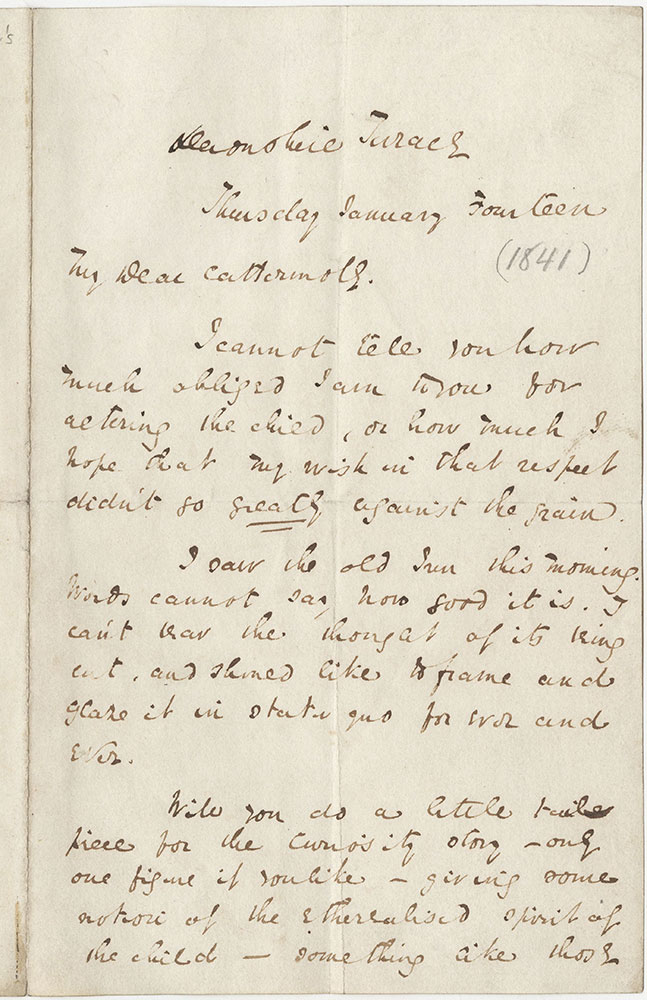 's
Devonshire Terrace
Thursday January Fourteen
(1841)
My Dear Cattermole.
I cannot tell you how
much obliged I am to you for
altering the child, or how much I
hope that my wish in that respect
didn't go greatly against the grain.
I saw the old Inn this morning.
Words cannot say how good it is. I
can't bear the thought of its being
cut, and should like to frame and
glaze it in statu quo for ever and
ever.
Will you do a little tail
piece for the Curiosity story – only
one figure if you like – giving some
notion of the etherealised spirit of
the child – something like those